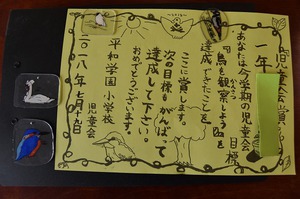 児童会賞
一年
あなたは今学期の児童会目標
『鳥を観察しよう』を
かんさつ
達成できたことを
ここに賞します。
次の目標もがんばって
達成して下さい。
おめでとうございます。
平和学園小学校
児童会
二〇一八年七月十九日